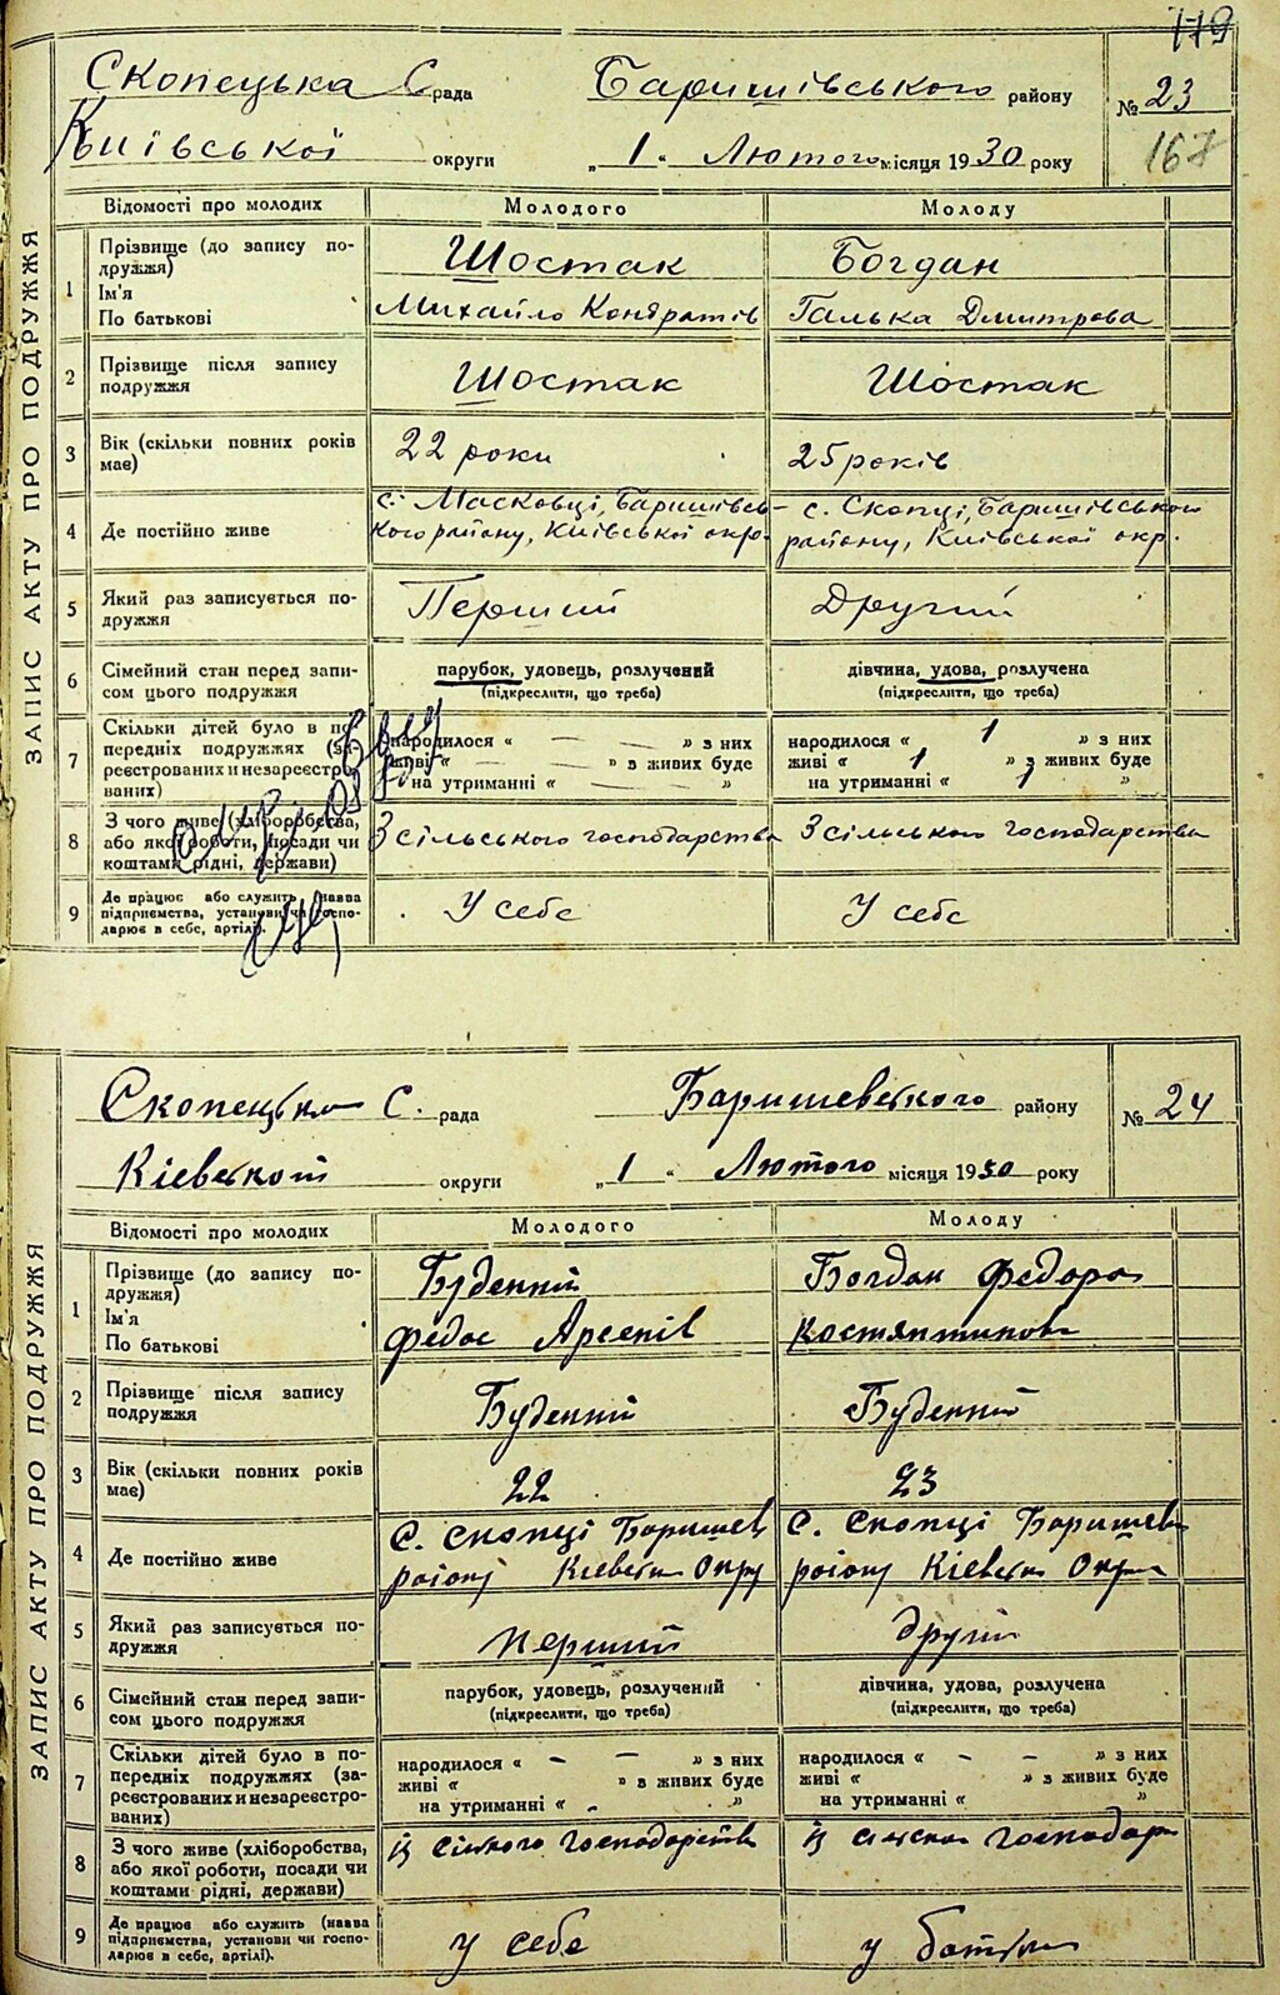 179
Скопецька С рада Баришівського району № 23
Київської округи „ 1 “ Лютого місяця 1930 року 167
ЗАПИС АКТУ ПРО ПОДРУЖЖЯ
Відомості про молодих Молодого Молоду
1 Прізвище (до запису по-
дружжя) Шостак Богдан
Ім'я
По батькові Михайло Кондратів Галька Дмитрова
2 Прізвище після запису
подружжя Шостак Шостак
3 Вік (скільки повних років
має) 22 роки 25 років
4 Де постійно живе с. Масковці, Баришівсь- с. Скопці, Баришівського
кого району, Київської окр. району, Київської окр.
5 Який раз записується по-
дружжя Перший Другий
6 Сімейний стан перед запи- парубок, удовець, розлучений дівчина, удова, розлучена
сом цього подружжя (підкреслити, що треба) (підкреслити, що треба)
7 Скільки дітей було в по-
передніх подружжях (за- народилося « — — » з них народилося « 1 » з них
реєстрованих и незареєстро- живі « — — » в живих буде живі « 1 » з живих буде
ваних) на утриманні « — — » на утриманні « 1 »
8 З чого живе (хліборобства,
або якої роботи, посади чи З сільського господарства З сільського господарства
коштами рідні, держави)
9 Де працює або служить (назва
підприємства, установи чи госпо- У себе У себе
дарює в себе, артілі).
Скопецька С. рада Баришевського району № 24
Кіевської округи „ 1 “ Лютого місяця 1930 року
ЗАПИС АКТУ ПРО ПОДРУЖЖЯ
Відомості про молодих Молодого Молоду
1 Прізвище (до запису по-
дружжя) Буденний Богдан Федора
Ім'я
По батькові Федос Арсенів Костянтинова
2 Прізвище після запису
подружжя Буденний Буденний
3 Вік (скільки повних років
має) 22 23
4 Де постійно живе С. Скопці Баришев С. Скопці Баришевь
роіону Кіевськ Окру роіону Кіевськ Окр
5 Який раз записується по-
дружжя перший другій
6 Сімейний стан перед запи- парубок, удовець, розлучений дівчина, удова, розлучена
сом цього подружжя (підкреслити, що треба) (підкреслити, що треба)
7 Скільки дітей було в по-
передніх подружжях (за- народилося « – – » з них народилося « – – » з них
реєстрованих и незареєстро- живі « » в живих буде живі « » з живих буде
ваних) на утриманні « – » на утриманні « »
8 З чого живе (хліборобства,
або якої роботи, посади чи із господарств із господар
коштами рідні, держави)
9 Де працює або служить (назва
підприємства, установи чи госпо- у себе у батьк
дарює в себе, артілі).